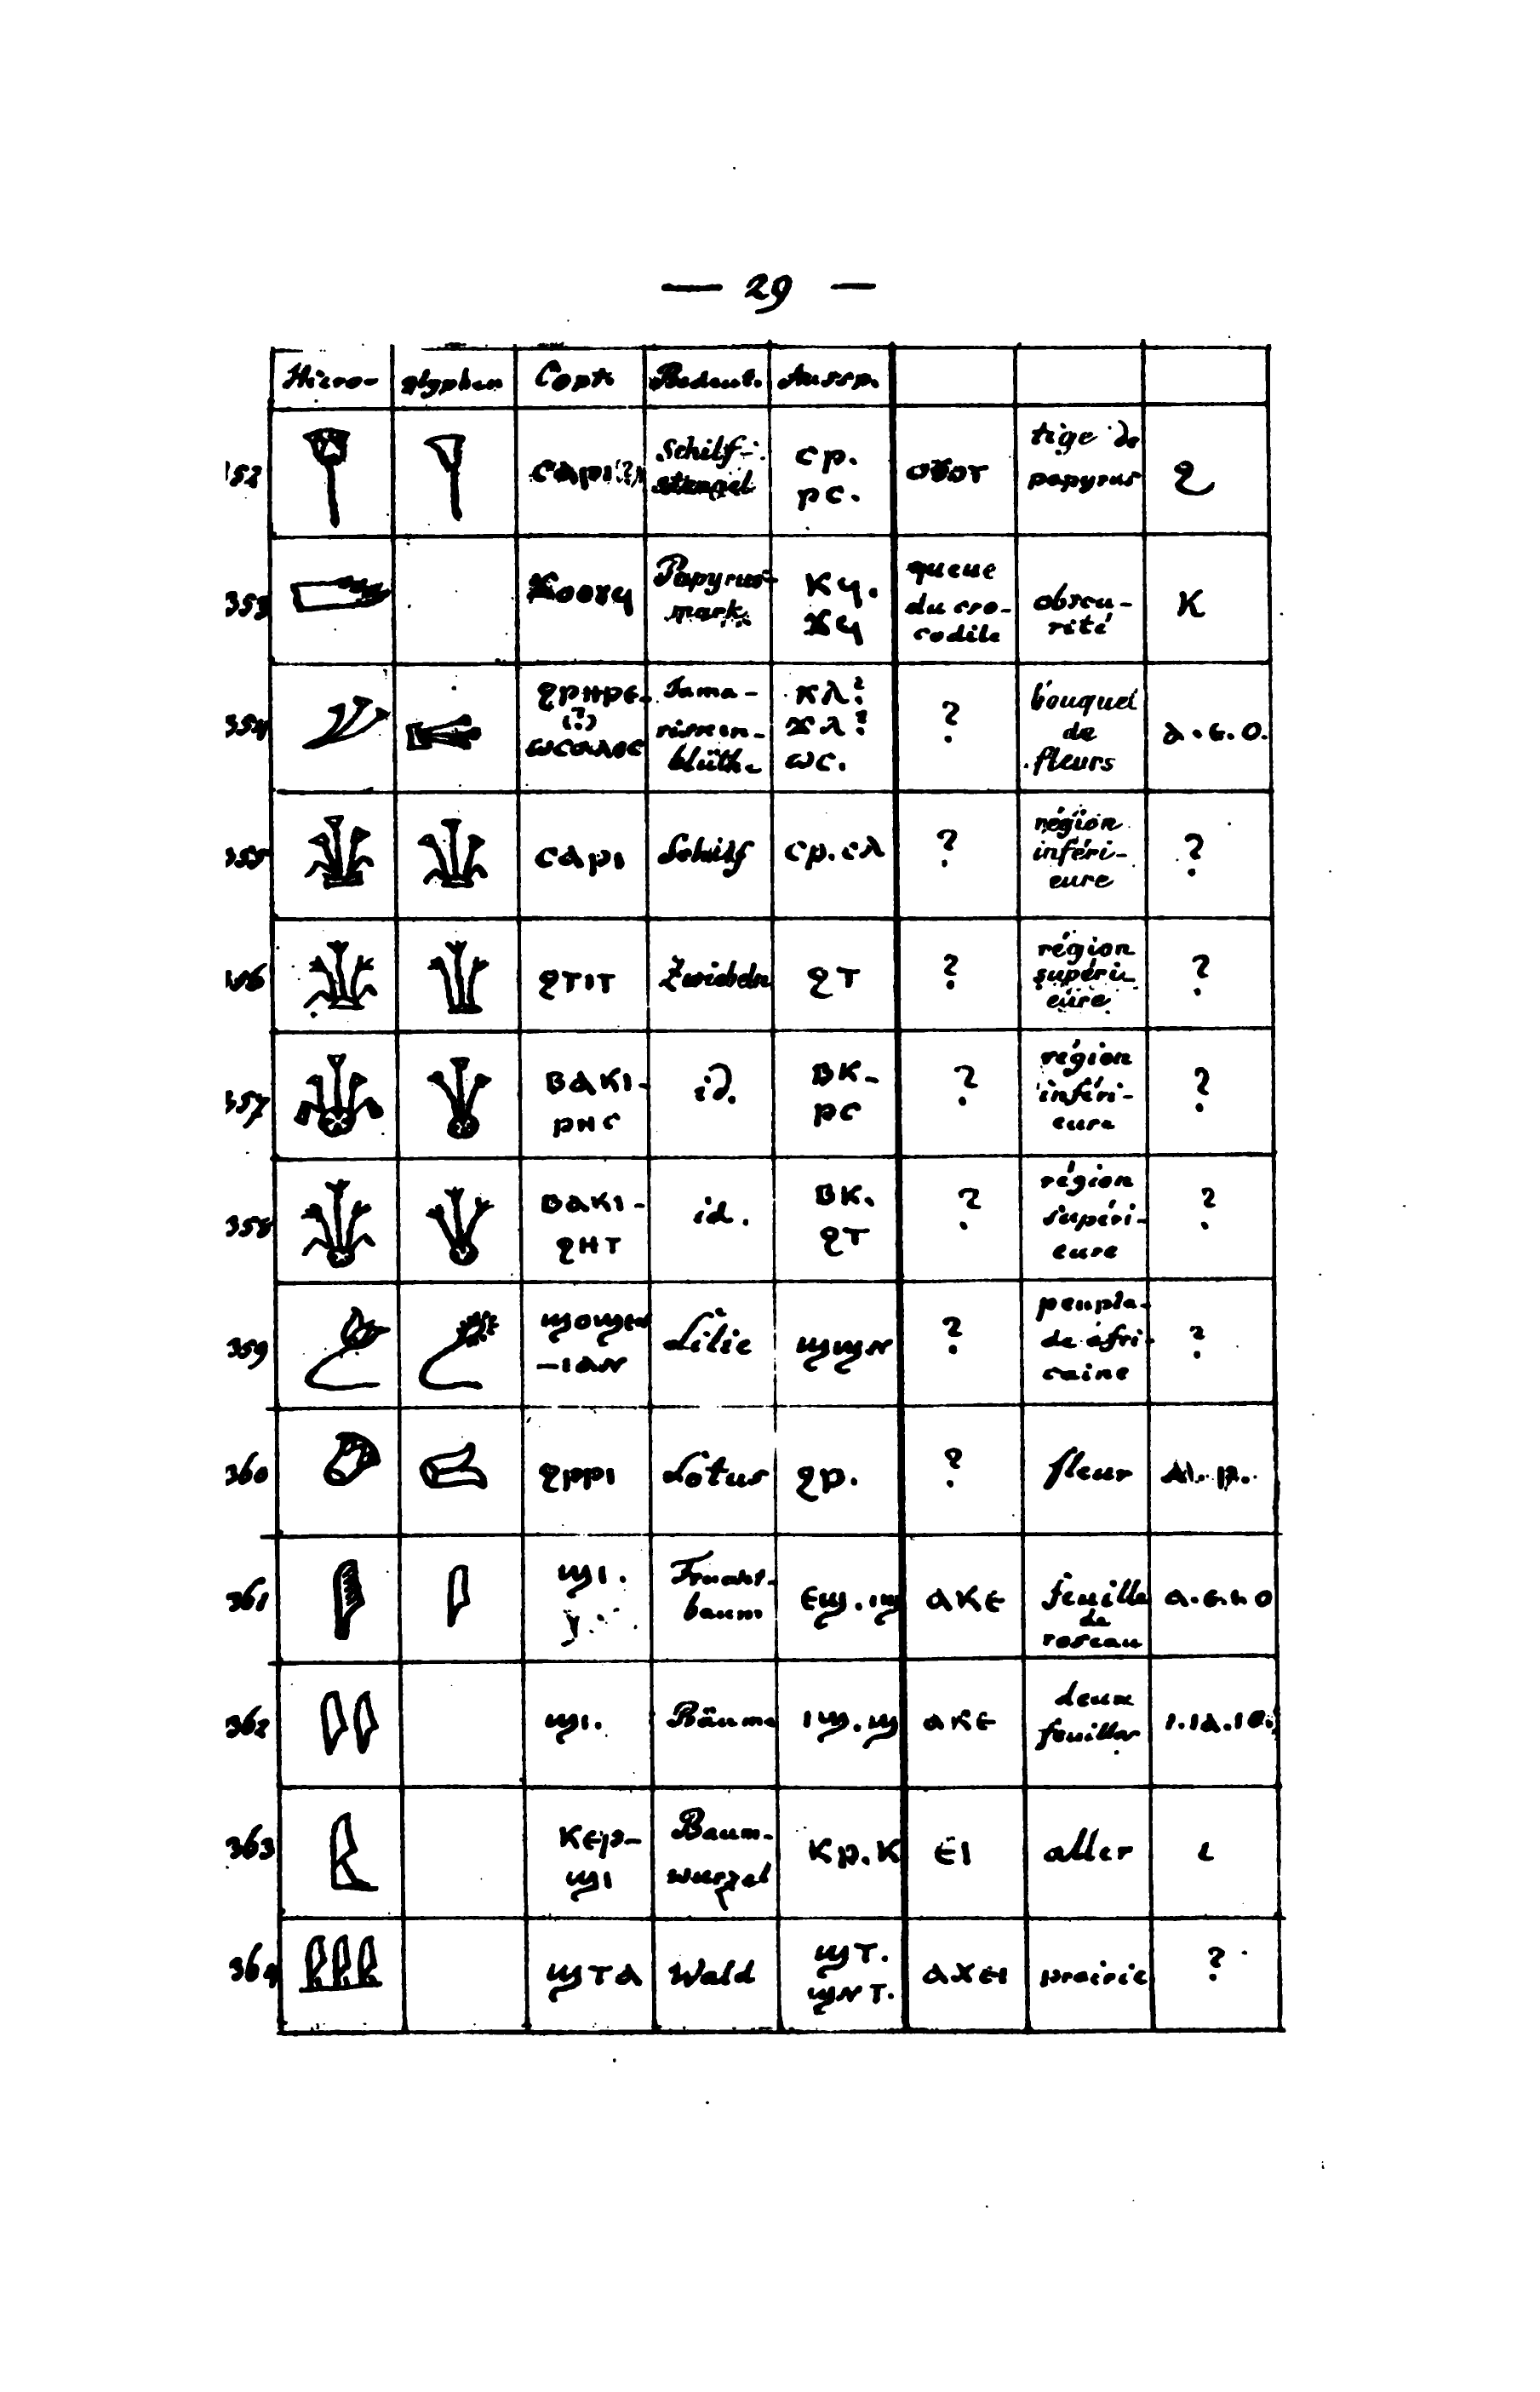 — 29 —
Hiero- glyphen Copt. Bedeut. Aussp.
352 ⲥⲁⲣⲓ(?) Schilf- stengel ⲥⲣ. ⲣⲥ. ⲟⲩⲟⲧ tige de papyrus ϩ
353 ϫⲟⲟⲩϥ Papyrus- mark ⲕϥ. ϫϥ queue du cro- codile obscu- rité ⲕ
354 ϩⲣⲏⲣⲉ- (?) Tama- rissen- blüthe ⲕⲗ? ϫⲗ? ⲱⲥ. ? bouquet de fleurs ⲁ.ⲉ.ⲟ.
355 ⲥⲁⲣⲓ Schilf ⲥⲣ.ⲥⲗ ? région inféri- eure ?
356 ϩⲧⲓⲧ Zwiebeln ϩⲧ ? région supéri- eure ?
357 ⲃⲁⲕⲓ- ⲣⲏⲥ id. ⲃⲕ- ⲣⲥ ? région inféri- eure ?
358 ⲃⲁⲕⲓ- ϩⲏⲧ id. ⲃⲕ. ϩⲧ ? région supéri- eure ?
359 ϣⲟϣⲉⲛ -ⲓⲁⲛ Lilie ϣϣⲛ ? peupla- de afri- caine ?
360 ϩⲣⲣⲓ Lotus ϩⲣ. ? fleur
361 ϣⲓ. Frucht- baum ⲉϣ.ⲓϣ ⲁⲕⲉ feuille de roseau
362 ϣⲓ. Bäume ⲓϣ.ϣ ⲁⲕⲉ deux feuilles ⲓ.ⲓⲁ.ⲓⲉ.
363 ⲕⲉⲣ- ϣⲓ Baum- wurzel ⲕⲣ.ⲕ ⲉⲓ aller ⲓ
364 ϣⲧⲁ Wald ϣⲧ. ϣⲛⲧ. ⲁⲭⲉⲓ prairie ?